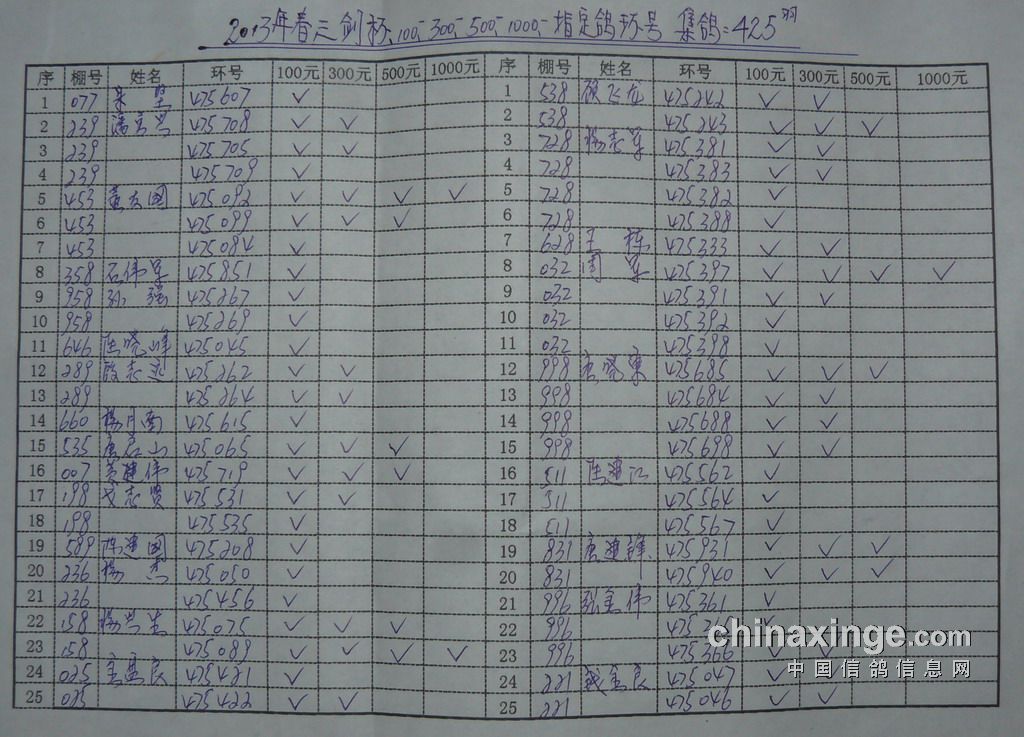 2013年春三剑杯.100,-300,-500,-1000,-指定鸽环号 集鸽:425羽
序 棚号 姓名 环号 100元 300元 500元 1000元 序 棚号 姓名 环号 100元 300元 500元 1000元
1 077 475607 ✓ 1 538 顾飞龙 475242 ✓ ✓
2 239 475708 ✓ ✓ 2 538 475243 ✓ ✓ ✓
3 239 475705 ✓ ✓ 3 728 杨志军 475381 ✓ ✓
4 239 475709 ✓ 4 728 475383 ✓ ✓
5 453 475092 ✓ ✓ ✓ ✓ 5 728 475382 ✓
6 453 475099 ✓ ✓ ✓ 6 728 475388 ✓
7 453 475084 ✓ 7 628 王栋 475333 ✓ ✓
8 358 石伟军 475851 ✓ 8 032 周军 475397 ✓ ✓ ✓ ✓
9 958 孙强 475267 ✓ 9 032 475391 ✓ ✓
10 958 475269 ✓ 10 032 475392 ✓
11 646 陈晓峰 475045 ✓ 11 032 475398 ✓
12 289 475262 ✓ ✓ 12 998 唐晓东 475685 ✓ ✓ ✓
13 289 475264 ✓ ✓ 13 998 475684 ✓ ✓
14 660 杨月南 475615 ✓ 14 998 475688 ✓ ✓
15 535 唐石山 475065 ✓ ✓ ✓ 15 998 475698 ✓ ✓
16 007 黄建伟 475719 ✓ ✓ ✓ 16 511 陈建江 475562 ✓
17 198 戈志贤 475531 ✓ ✓ 17 511 475564 ✓
18 198 475535 ✓ 18 511 475567 ✓
19 589 陈建国 475208 ✓ 19 831 唐建锋 475931 ✓ ✓ ✓
20 236 杨杰 475050 ✓ 20 831 475940 ✓ ✓ ✓
21 236 475456 ✓ 21 996 张金伟 475361 ✓
22 158 杨兴生 475075 ✓ ✓ ✓ 22 996
23 158 475089 ✓ ✓ ✓ ✓ 23 996 475366
24 025 金益良 475421 ✓ 24 221 钱金良 475047 ✓
25 025 475422 ✓ ✓ 25 221 475046 ✓ ✓
chinaxinge.com
中国信鸽信息网